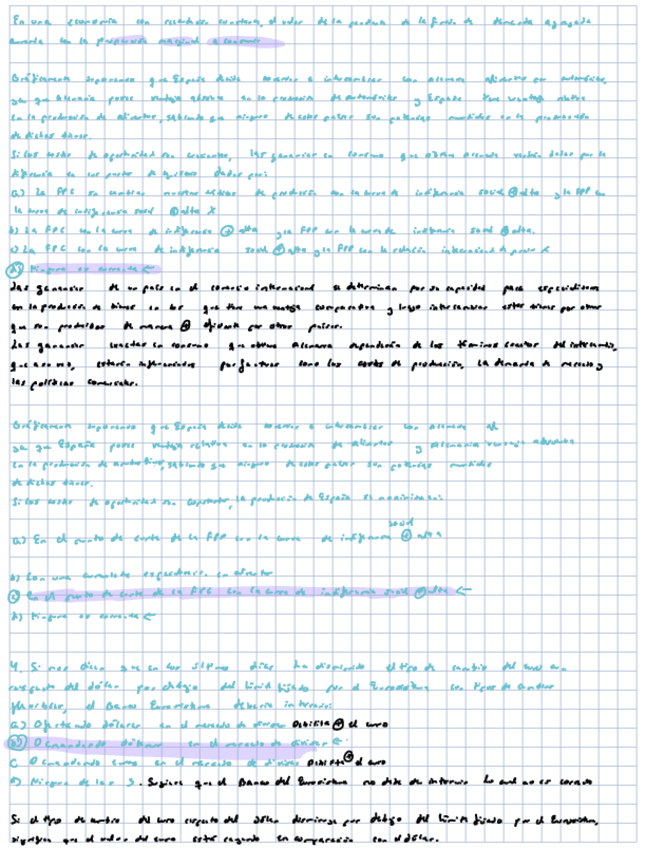 En una economía con recaudación constante, el valor de la pendiente de la función de demanda agregada
aumenta con la propensión marginal a consumir
Gráficamente suponemos que España decide comerciar e intercambiar con alemania alimentos por automóviles,
ya que Alemania posee ventaja absoluta en la producción de automóviles y España tiene ventaja relativa
en la producción de alimentos, sabiendo que ninguno de estos países son potencias mundiales en la producción
de dichos bienes.
Si los costes de oportunidad son constantes, las ganancias en consumo que obtiene alemania vendrán dadas por la
diferencia en sus puntos de equilibrio dados por:
a) La FPC sin cambiar nuestros hábitos de producción con la curva de indiferencia social + alta y la FPP con
la curva de indiferencia social + alta X
b) La FPC con la curva de indiferencia + alta y la FPP con la curva de indiferencia social + alta.
c) La FPC con la curva de indiferencia social + alta y la FPP con la relación internacional de precios
d) Ninguna es correcta ←
Las ganancias de un país en el comercio internacional se determinan por su capacidad para especializarse
en la producción de bienes en los que tiene una ventaja comparativa y luego intercambiar estos bienes por otros
que son producidos de manera + eficiente por otros países.
Las ganancias exactas en consumo que obtiene Alemania dependerán de los términos exactos del intercambio,
que a su vez, estarán influenciados por factores como los costes de producción, la demanda de mercado y
las políticas comerciales.
Gráficamente suponemos que España decide comerciar e intercambiar con alemania al
ya que España posee ventaja relativa en la producción de alimentos y Alemania ventaja absoluta
en la producción de automóviles, sabiendo que ninguno de estos países son potencias mundiales
de dichos bienes.
Si los costes de oportunidad son constantes, la producción de España se maximizará:
a) En el punto de corte de la FPP con la curva de indiferencia social + alta
b) Con una completa especialización en alimentos
c) En el punto de corte de la FPC con la curva de indiferencia social + alta ←
d) Ninguna es correcta ←
4. Si nos dicen que en los últimos días ha disminuido el tipo de cambio del euro con
respecto del dólar por debajo del límite fijado por el Eurosistema con tipos de cambio
flexibles, el Banco Eurosistema debería intervenir:
a) Ofertando dólares en el mercado de divisas Debilita + el euro
b) Demandando dólares en el mercado de divisas ←
c) Demandando euros en el mercado de divisas Debilita + el euro
d) Ninguna de las 3. Sugiere que el Banco del Eurosistema no debe de intervenir lo cual no es correcto
Si el tipo de cambio del euro respecto del dólar disminuye por debajo del límite fijado por el Eurosistema,
significa que el valor del euro está cayendo en comparación con el dólar.